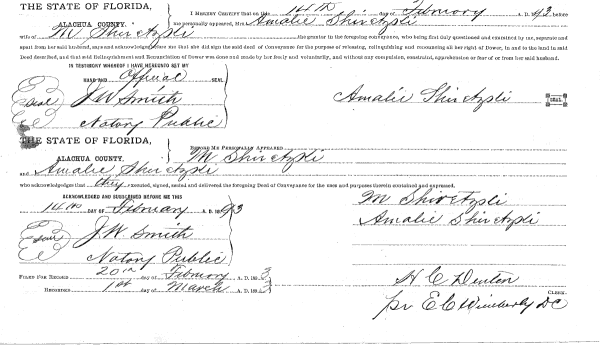 THE STATE OF FLORIDA,
ALACHUA COUNTY.
I HEREBY CERTIFY that on this 14th day of February A. D. 93 before
me personally appeared, Mrs. Amalie Shiretzki
wife of M Shiretzki the grantor in the foregoing conveyance, who being first duly questioned and examined by me, separate and
apart from her said husband, say and acknowledge before me that she did sign the said deed of Conveyance for the purpose of releasing, relinquishing and renouncing all her right of Dower, in and to the land in said
Deed described, and that said Relinquishment and Renunciation of Dower was done and made by her freely and voluntarily, and without any compulsion, constraint, apprehension or fear of or from her said husband.
IN TESTIMONY WHEREOF I HAVE HEREUNTO SET MY
HAND AND Official
Seal
J W Smith
Notary Public
Amalie Shiretzki
SEAL
THE STATE OF FLORIDA,
ALACHUA COUNTY.
BEFORE ME PERSONALLY APPEARED M Shiretzki
and Amalie Shiretzki
who acknowledges that they executed, signed, sealed and delivered the foregoing Deed of Conveyance for the uses and purposes therein contained and expressed.
ACKNOWLEDGED AND SUBSCRIBED BEFORE ME THIS
14th DAY OF February A. D. 1893
M Shiretzki
Amalie Shiretzki
Seal
J W Smith
Notary Public
FILED FOR RECORD 20th day of February A. D. 1893
RECORDED 1st day of March A. D. 1893
H C Denton
CLERK.
pr E C Wimberly DC